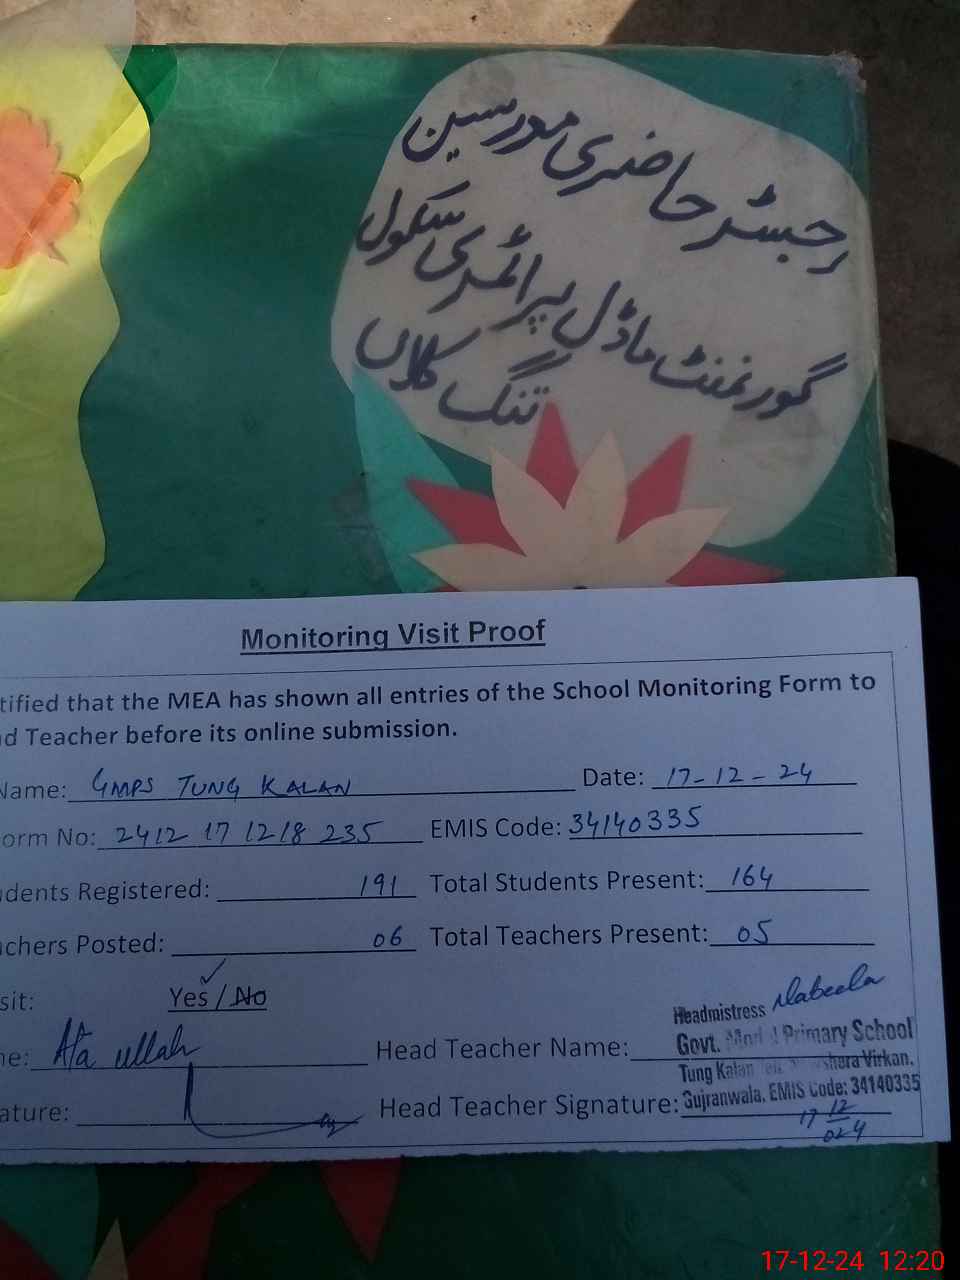 رجسٹر حاضری مدرسین
گورنمنٹ ماڈل پرائمری سکول
تنگ کلاں
Monitoring Visit Proof
tified that the MEA has shown all entries of the School Monitoring Form to
d Teacher before its online submission.
Name: GMPS TUNG KALAN Date: 17-12-24
orm No: 2412 17 1218 235 EMIS Code: 34140335
dents Registered: 191 Total Students Present: 164
chers Posted: 06 Total Teachers Present: 05
sit: Yes / No
ne: Ata ullah Head Teacher Name:
ature: Head Teacher Signature:
Headmistress Nabeela
Govt. Model Primary School
Tung Kalan Virkan.
Gujranwala. EMIS Code: 34140335
17 12
024
17-12-24 12:20